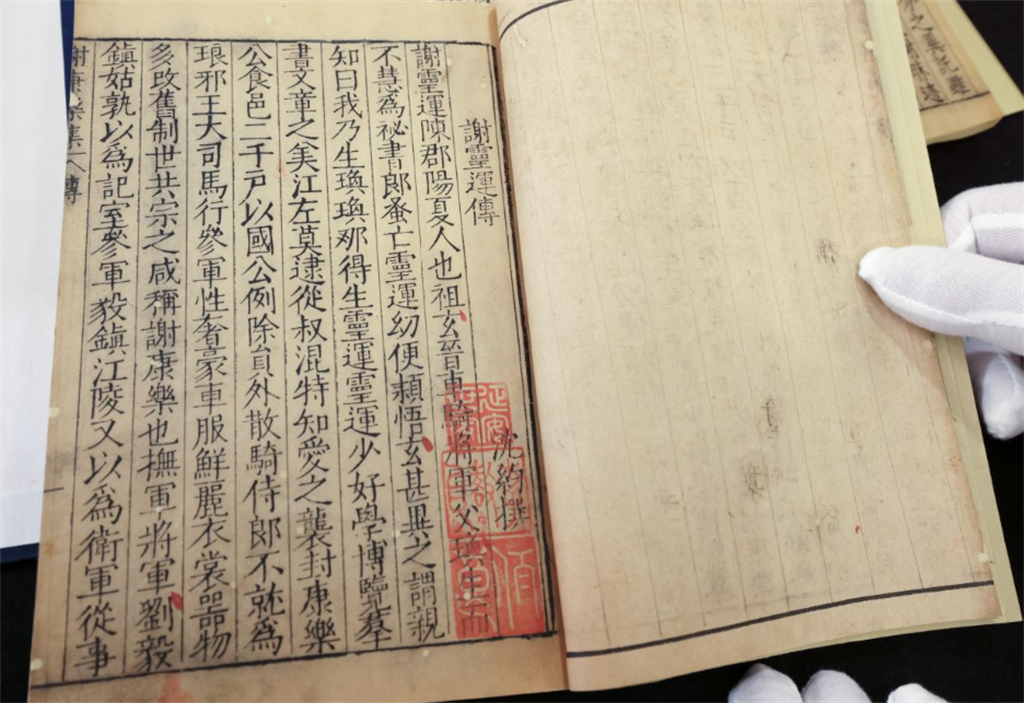 謝靈運傳
沈約撰
謝靈運陳郡陽夏人也祖玄晉車騎將軍父瑍生而
不慧爲祕書郎蚤亡靈運幼便穎悟玄甚異之謂親
知曰我乃生瑍瑍那得生靈運靈運少好學博覽羣
書文章之美江左莫逮從叔混特知愛之襲封康樂
公食邑二千戶以國公例除員外散騎侍郎不就爲
琅邪王大司馬行參軍性奢豪車服鮮麗衣裳器物
多改舊制世共宗之咸稱謝康樂也撫軍將軍劉毅
鎮姑孰以爲記室參軍毅鎮江陵又以爲衛軍從事
謝康樂集 傳